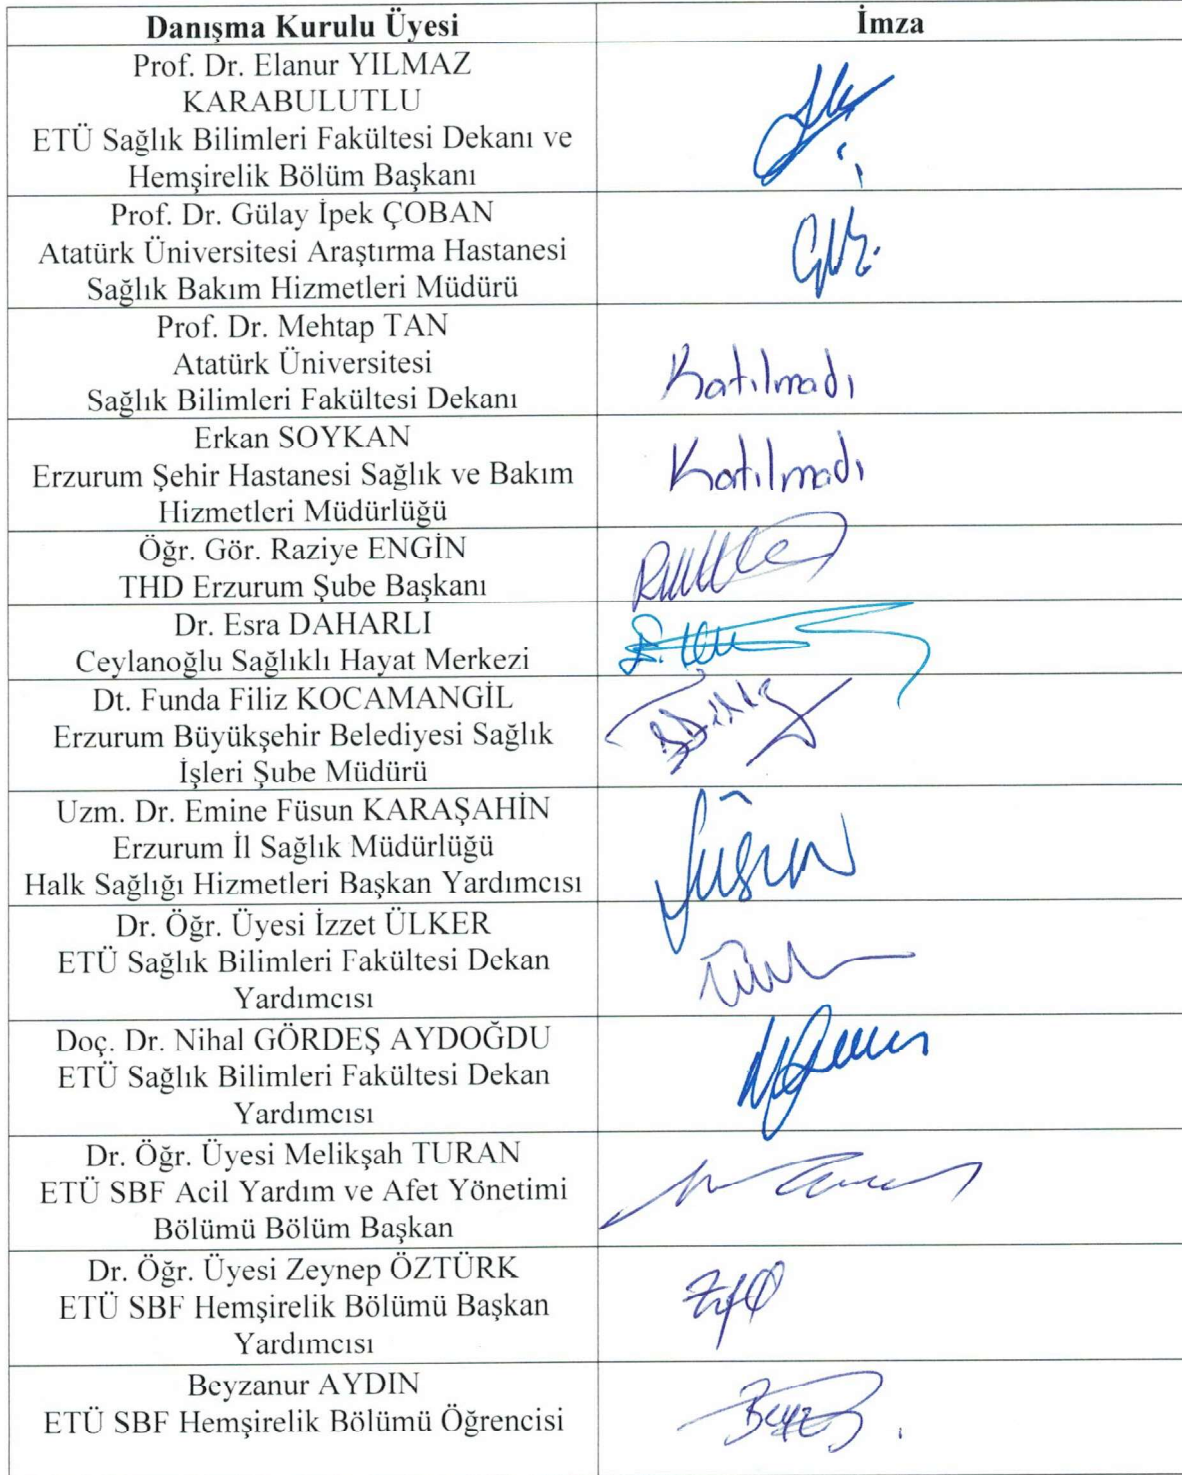 Danışma Kurulu Üyesi
İmza
Prof. Dr. Elanur YILMAZ
KARABULUTLU
ETÜ Sağlık Bilimleri Fakültesi Dekanı ve
Hemşirelik Bölüm Başkanı
Prof. Dr. Gülay İpek ÇOBAN
Atatürk Üniversitesi Araştırma Hastanesi
Sağlık Bakım Hizmetleri Müdürü
Prof. Dr. Mehtap TAN
Atatürk Üniversitesi
Sağlık Bilimleri Fakültesi Dekanı
Katılmadı
Erkan SOYKAN
Erzurum Şehir Hastanesi Sağlık ve Bakım
Hizmetleri Müdürlüğü
Katılmadı
Öğr. Gör. Raziye ENGİN
THD Erzurum Şube Başkanı
Dr. Esra DAHARLI
Ceylanoğlu Sağlıklı Hayat Merkezi
Dt. Funda Filiz KOCAMANGİL
Erzurum Büyükşehir Belediyesi Sağlık
İşleri Şube Müdürü
Uzm. Dr. Emine Füsun KARAŞAHİN
Erzurum İl Sağlık Müdürlüğü
Halk Sağlığı Hizmetleri Başkan Yardımcısı
Füsun
Dr. Öğr. Üyesi İzzet ÜLKER
ETÜ Sağlık Bilimleri Fakültesi Dekan
Yardımcısı
Doç. Dr. Nihal GÖRDEŞ AYDOĞDU
ETÜ Sağlık Bilimleri Fakültesi Dekan
Yardımcısı
Dr. Öğr. Üyesi Melikşah TURAN
ETÜ SBF Acil Yardım ve Afet Yönetimi
Bölümü Bölüm Başkan
Dr. Öğr. Üyesi Zeynep ÖZTÜRK
ETÜ SBF Hemşirelik Bölümü Başkan
Yardımcısı
Beyzanur AYDIN
ETÜ SBF Hemşirelik Bölümü Öğrencisi